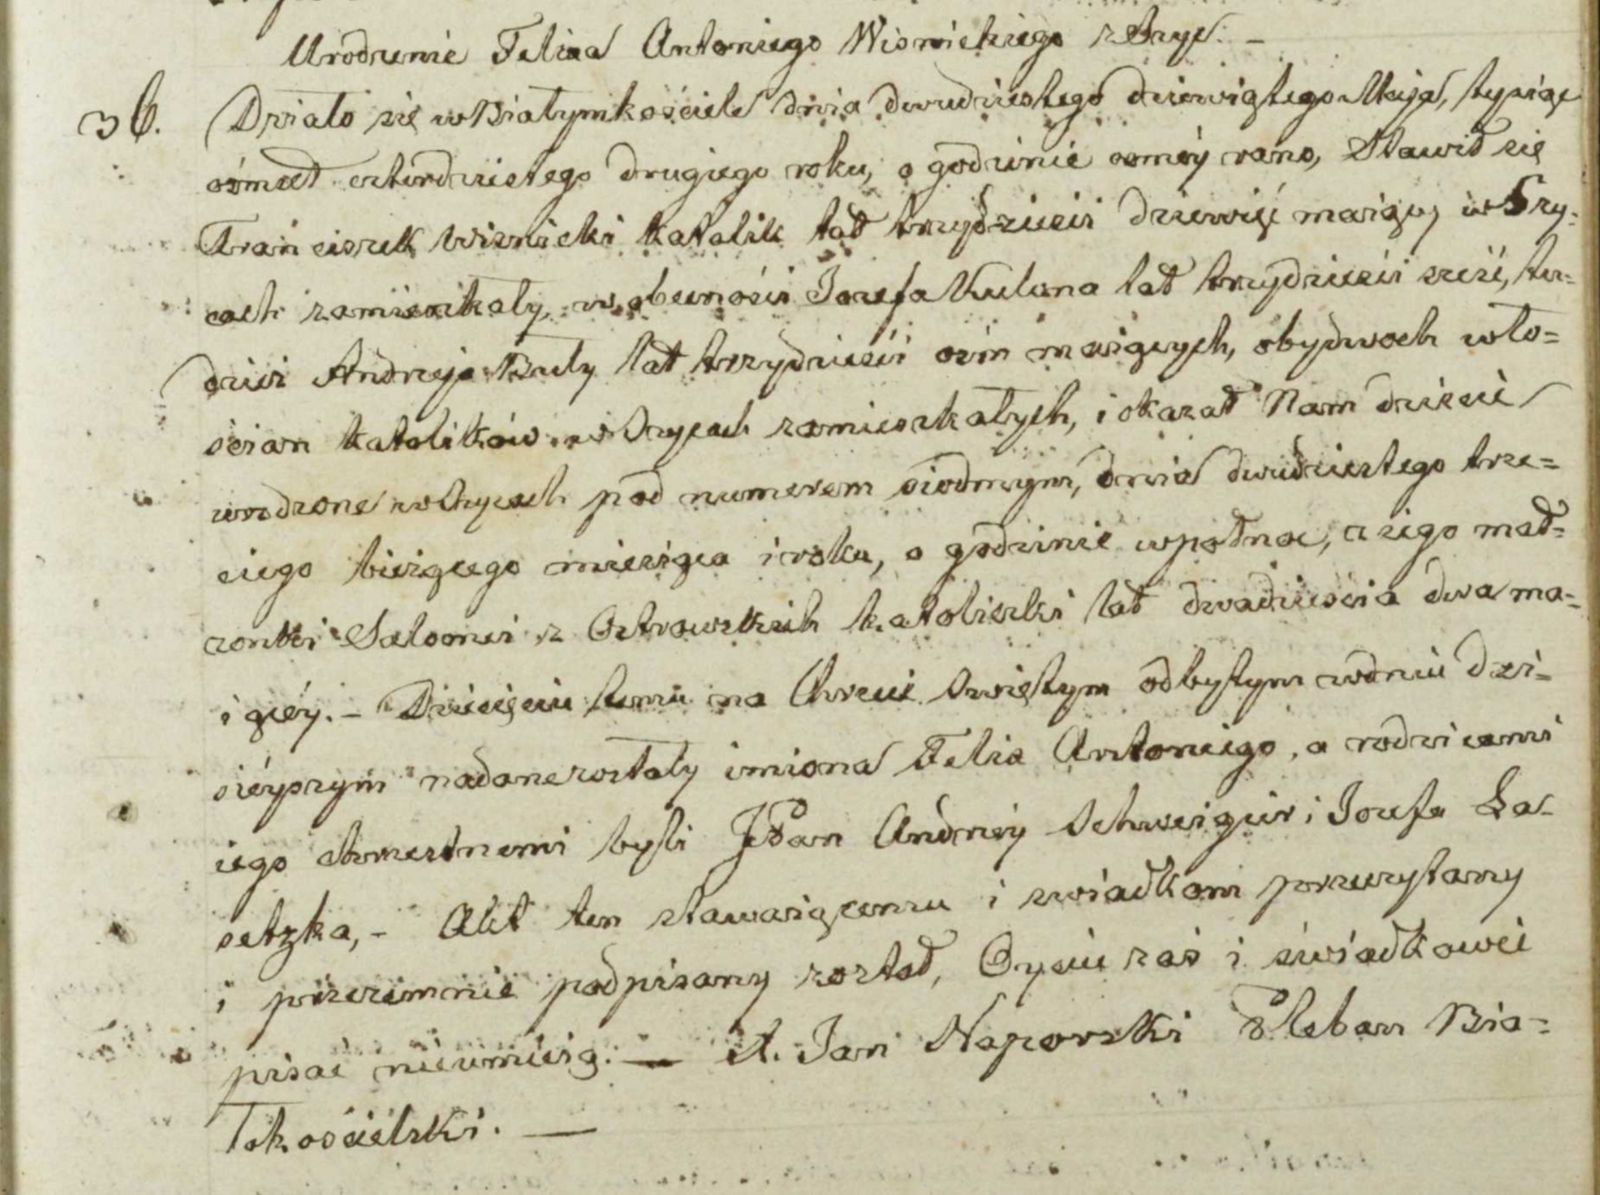 Urodzenie Felixa Antoniego Wisnickiego z Bryc. –
36. Działo się w Białymkościele dnia dwudziestego dziewiątego Maja, tysiąc
ośmset czterdziestego drugiego roku, o godzinie osméy rano, Stawił się
Franciszek Wisnicki katolik lat trzydzieści dziewięć maiący w Bry-
cach zamieszkały, w obecności Jozefa Kulona lat trzydzieści sześć, tu-
dzież Andrzeja Buły lat trzydzieści osm maiących, obydwoch wło=
scian katolików w Brycach zamieszkałych, i okazał Nam dziecie
urodzone w Brycach pod numerem siodmym, dnia dwudziestego trze=
ciego bieżącego miesiąca i roku, o godzinie wpołnoc, z iego mał=
zonki Salomei z Ostrowskich katoliczki lat dwadzieścia dwa ma=
iącéy. – Dziecięciu temu na Chrzcie Swiętym odbytym w dniu dzi=
siéyszym nadane zostały imiona Felix Antoniego, a rodzicami
iego chrzestnemi byli JPan Andrzéy Schweiger i Jozefa La-
setzka, – Akt ten stawaiącemu i swiadkom przeczytany
i przezemnie podpisany został, Oyciec zaś i świadkowie
pisać nieumieią. — X. Jan Naporski Pleban Bia=
łokościelski. —